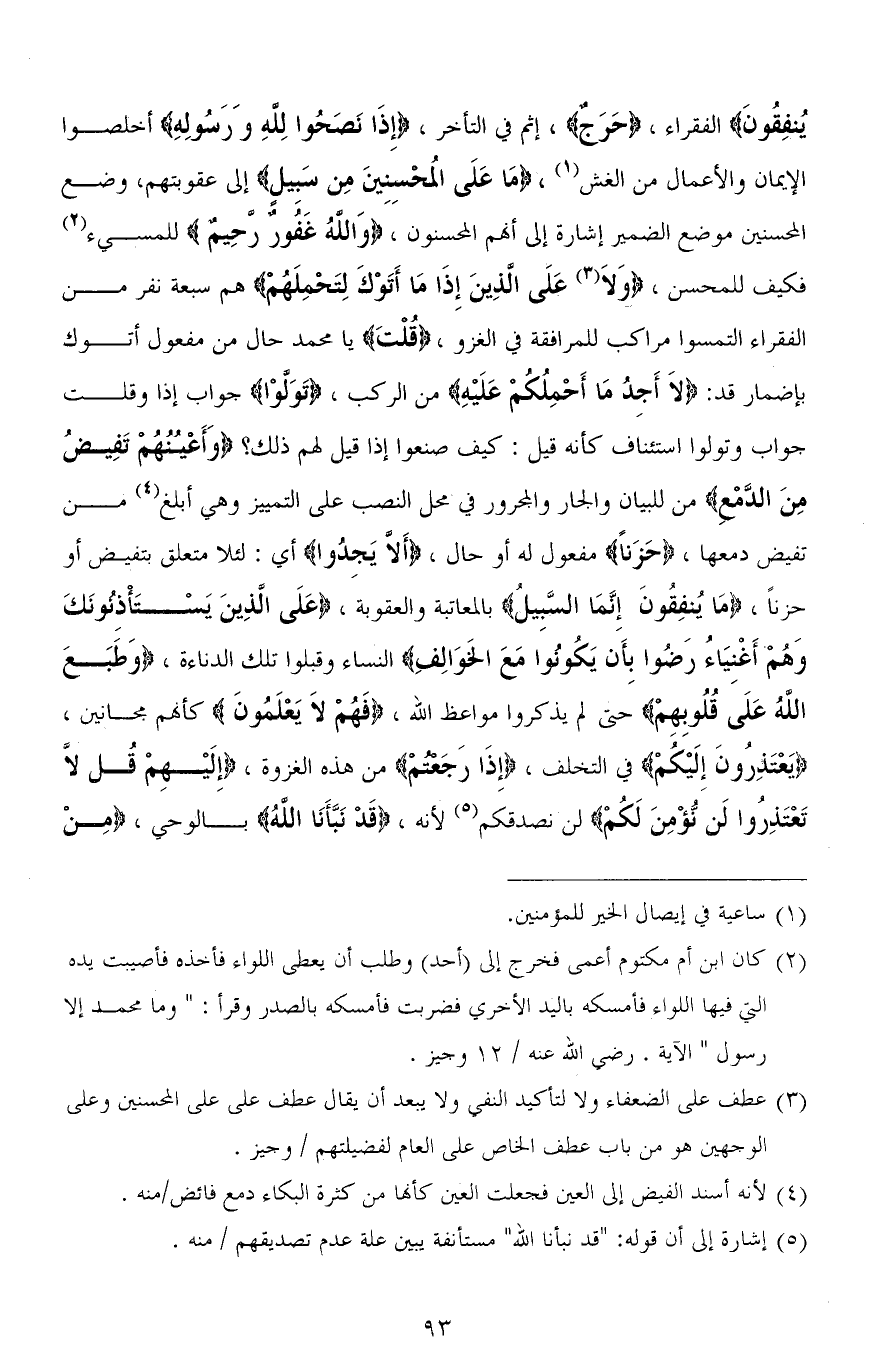 يُنفِقُونَ﴾ الفقراء ، ﴿حَرَجٌ﴾ ، إثم في التأخر ، ﴿إِذَا نَصَحُوا لِلَّهِ وَرَسُولِهِ﴾ أخلصوا
الإيمان والأعمال من الغش(١) ، ﴿مَا عَلَى الْمُحْسِنِينَ مِن سَبِيلٍ﴾ إلى عقوبتهم، وضع
المحسنين موضع الضمير إشارة إلى أنهم المحسنون ، ﴿وَاللَّهُ غَفُورٌ رَّحِيمٌ ﴾ للمسيء(٢)
فكيف للمحسن ، ﴿وَلاَ(٣) عَلَى الَّذِينَ إِذَا مَا أَتَوْكَ لِتَحْمِلَهُمْ﴾ هم سبعة نفر من
الفقراء التمسوا مراكب للمرافقة في الغزو ، ﴿قُلْتَ﴾ يا محمد حال من مفعول أتوك
بإضمار قد: ﴿لاَ أَجِدُ مَا أَحْمِلُكُمْ عَلَيْهِ﴾ من الركب ، ﴿تَوَلَّوْا﴾ جواب إذا وقلت
جواب وتولوا استئناف كأنه قيل : كيف صنعوا إذا قيل لهم ذلك؟ ﴿وَأَعْيُنُهُمْ تَفِيضُ
مِنَ الدَّمْعِ﴾ من للبيان والجار والمجرور في محل النصب على التمييز وهي أبلغ(٤) من
تفيض دمعها ، ﴿حَزَناً﴾ مفعول له أو حال ، ﴿أَلاَّ يَجِدُوا﴾ أي : لئلا متعلق بتفيض أو
حزناً ، ﴿مَا يُنفِقُونَ إِنَّمَا السَّبِيلُ﴾ بالمعاتبة والعقوبة ، ﴿عَلَى الَّذِينَ يَسْتَأْذِنُونَكَ
وَهُمْ أَغْنِيَاءُ رَضُوا بِأَن يَكُونُوا مَعَ الخَوَالِفِ﴾ النساء وقبلوا تلك الدناءة ، ﴿وَطَبَعَ
اللَّهُ عَلَى قُلُوبِهِمْ﴾ حتى لم يذكروا مواعظ الله ، ﴿فَهُمْ لاَ يَعْلَمُونَ ﴾ كأنهم مجانين ،
﴿يَعْتَذِرُونَ إِلَيْكُمْ﴾ في التخلف ، ﴿إِذَا رَجَعْتُمْ﴾ من هذه الغزوة ، ﴿إِلَيْهِمْ قُل لاَّ
تَعْتَذِرُوا لَن نُّؤْمِنَ لَكُمْ﴾ لن نصدقكم(٥) لأنه ، ﴿قَدْ نَبَّأَنَا اللَّهُ﴾ بالوحي ، ﴿مِنْ
(١) ساعية في إيصال الخير للمؤمنين.
(٢) كان ابن أم مكتوم أعمى فخرج إلى (أحد) وطلب أن يعطى اللواء فأخذه فأصيبت يده
التي فيها اللواء فأمسكه باليد الأخري فضربت فأمسكه بالصدر وقرأ : " وما محمد إلا
رسول " الآية . رضي الله عنه / ١٢ وجيز .
(٣) عطف على الضعفاء ولا لتأكيد النفي ولا يبعد أن يقال عطف على على المحسنين وعلى
الوجهين هو من باب عطف الخاص على العام لفضيلتهم / وجيز .
(٤) لأنه أسند الفيض إلى العين فجعلت العين كأنها من كثرة البكاء دمع فائض/منه .
(٥) إشارة إلى أن قوله: "قد نبأنا الله" مستأنفة يبين علة عدم تصديقهم / منه .
٩٣